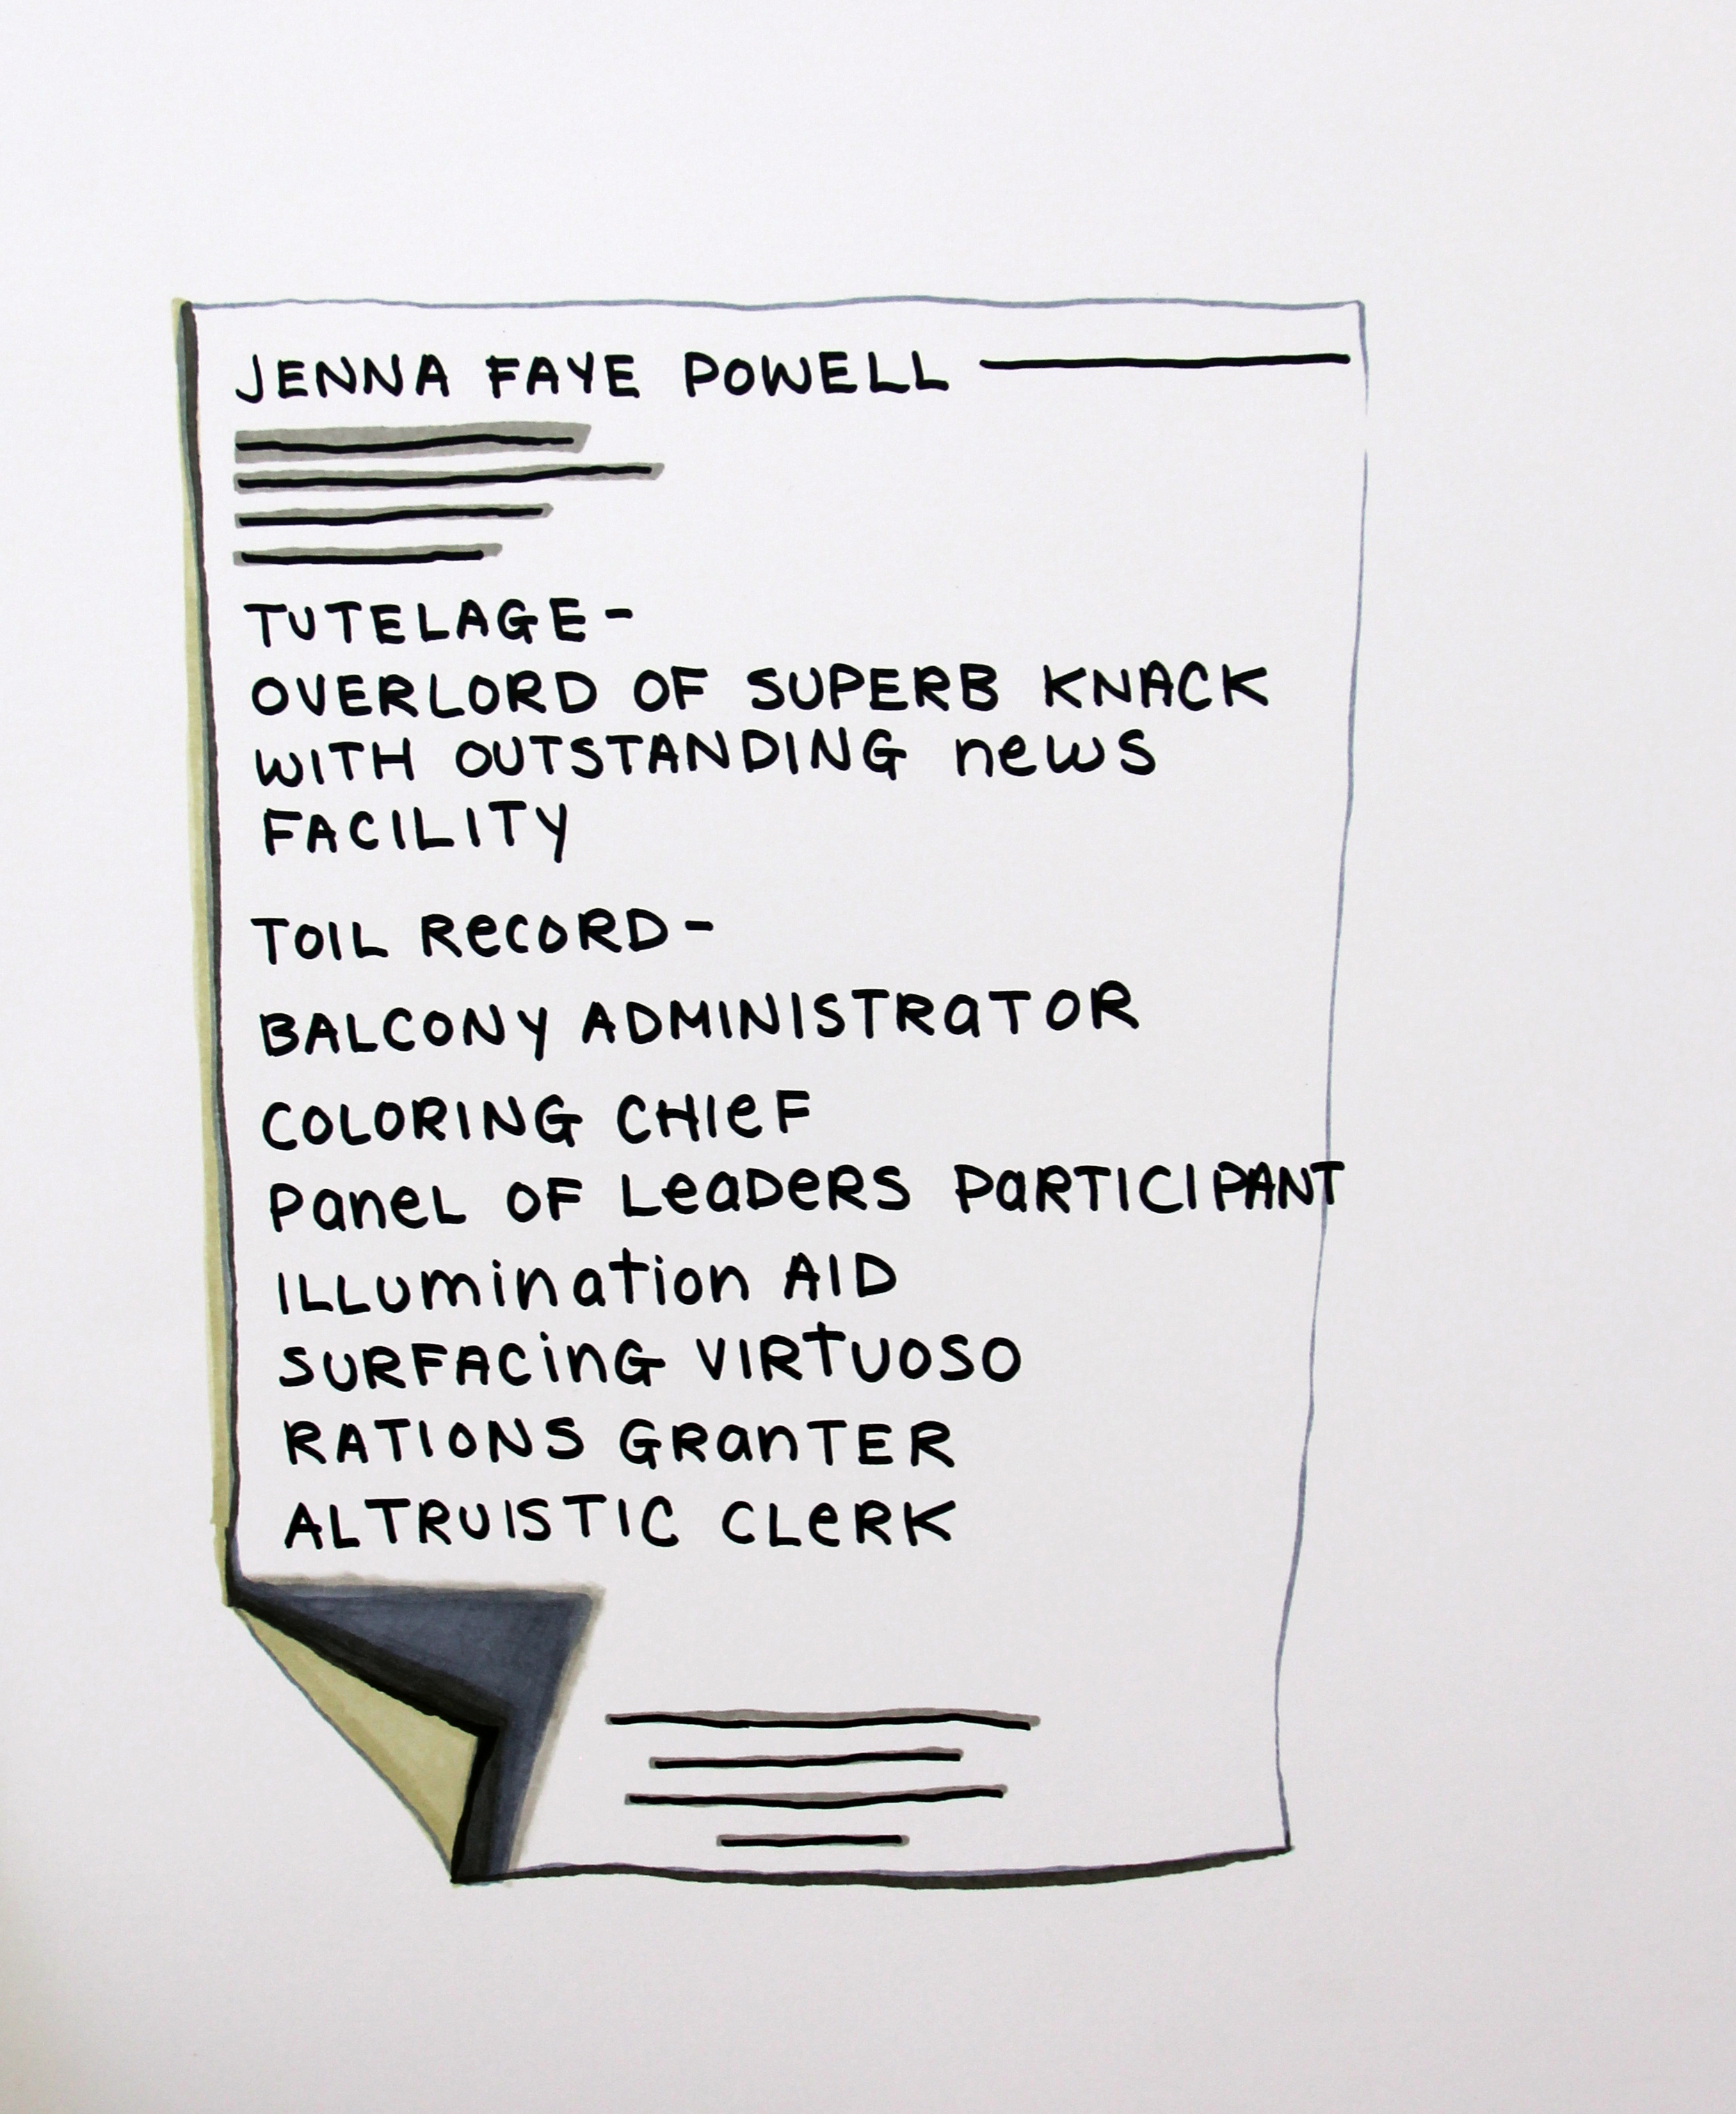 JENNA FAYE POWELL
TUTELAGE-
OVERLORD OF SUPERB KNACK
WITH OUTSTANDING news
FACILITY
TOIL RecORD-
BALCONY ADMINISTRaTOR
COLORING CHIeF
PaneL OF LeaDeRS PaRTICIPANT
ILLumination AID
SURFACinG VIRtUOSO
RATIONS GRanTER
ALTRUISTIC CLeRK